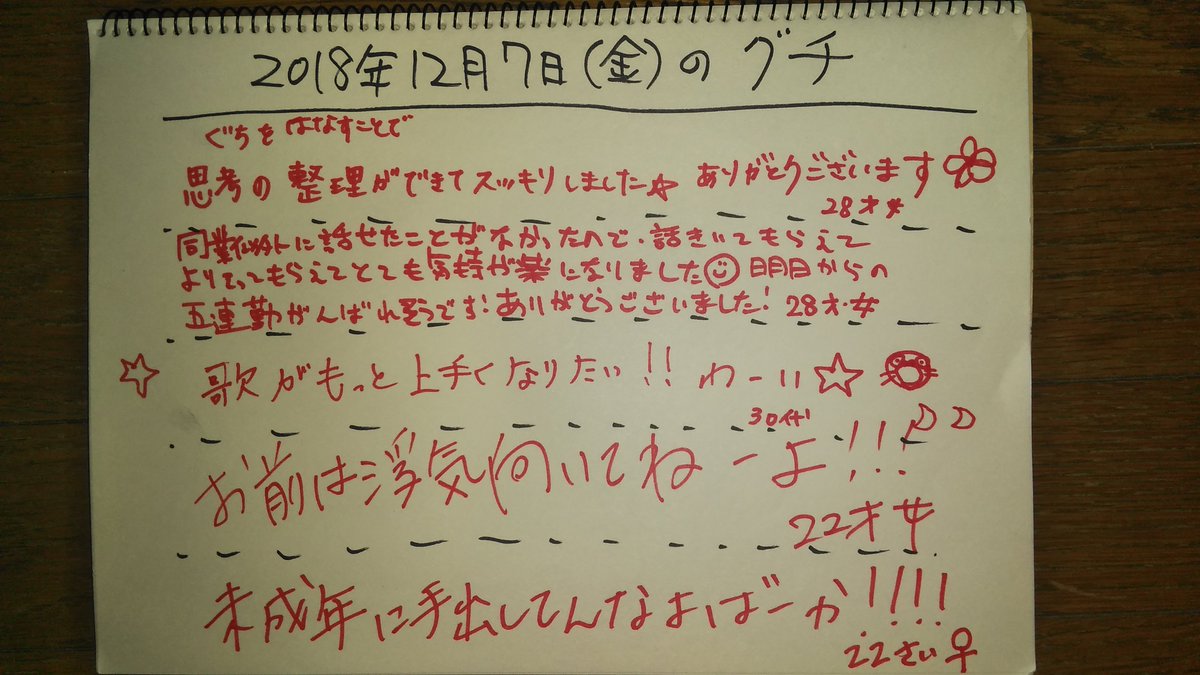 2018年12月7日(金)のグチ
ぐちをはなすことで
思考の整理ができてスッキリしました☆ ありがとうございます
28才女
同業以外に話せたことがなかったので、話きいてもらえて
よりそってもらえてとても気持が楽になりました☺ 明日からの
五連勤がんばれそうです!ありがとうございました! 28才・女
☆ 歌がもっと上手くなりたい!! わーい☆
30代
お前は浮気向いてねーよ!!!
22才女
未成年に手出してんなよばーか!!!!
22さい♀